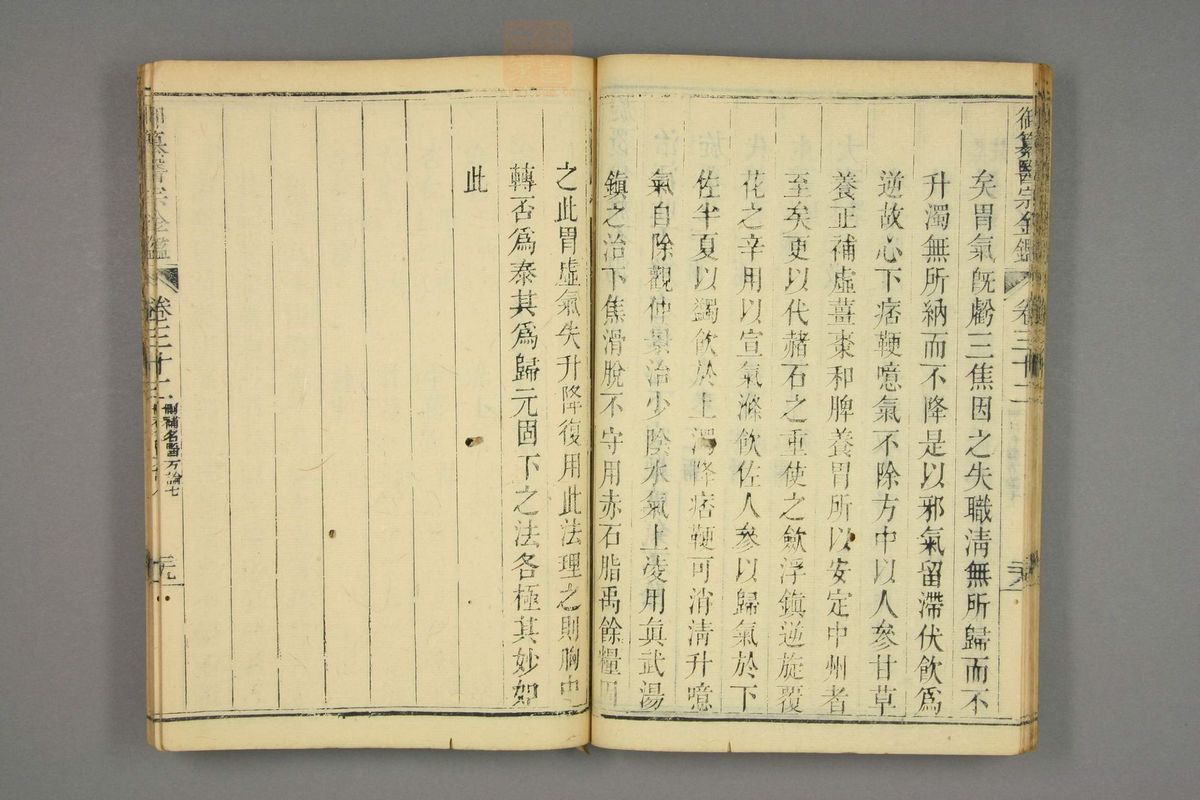 御纂醫宗金鑑 卷三十二
矣胃氣旣虧三焦因之失職淸無所歸而不
升濁無所納而不降是以邪氣留滯伏飮爲
逆故心下痞鞕噫氣不除方中以人參甘草
養正補虛薑棗和脾養胃所以安定中州者
至矣更以代赭石之重使之歛浮鎮逆旋覆
花之辛用以宣氣滌飮佐人參以歸氣於下
佐半夏以蠲飮於上濁降痞鞕可消淸升噫
氣自除觀仲景治少陰水氣上凌用眞武湯
鎮之治下焦滑脫不守用赤石脂禹餘糧
之此胃虛氣失升降復用此法理之則胸中
轉否爲泰其爲歸元固下之法各極其妙如
此
御纂醫宗金鑑 卷三十二 刪補名醫方論七 二十九